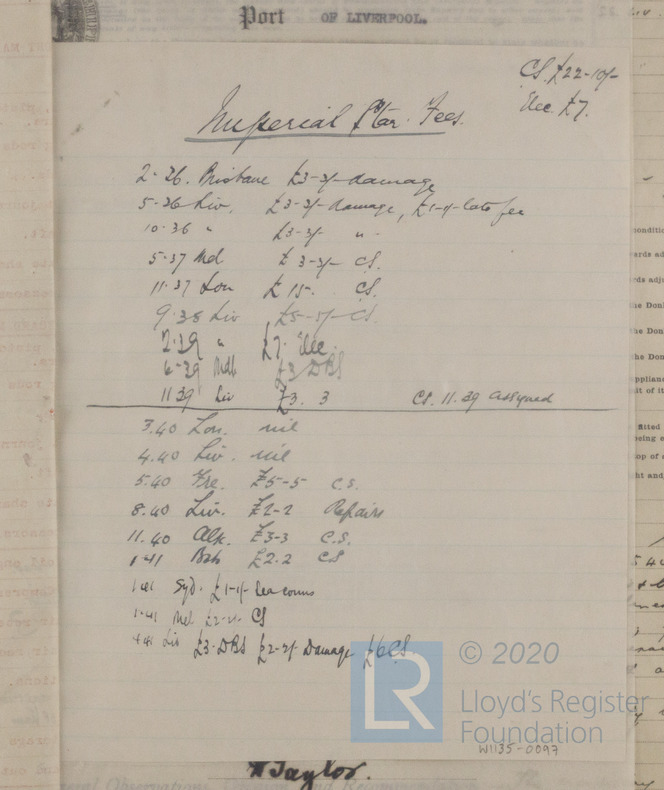 Port OF LIVERPOOL.
CS £22-10/-
Elec £7.
Imperial Star. Fees.
2-36. Brisbane £3-3/- damage
5-36 Liv. £3-3/- damage, £1-1/- late fee
10-36 " £3-3/- "
5-37 Mel £3-3/- CS.
11-37 Lon £15. CS.
9-38 Liv £5-5/- CS.
2-39 " £7 Elec.
6-39 Mdb £3 DBS
11 39 Liv £3. 3 CS. 11.39 assigned
3.40 Lon. nil
4.40 Liv. nil
5.40 Fre. £5-5 C.S.
8.40 Liv. £2-2 Repairs
11.40 Alk. £3-3 C.S.
1-41 Bsb £2.2 CS
1-41 Syd. £1-1/-
1-41 Mel £2-2/- CS
4-41 Liv £3-DBS £2-2/- Damage £6 CS.
© 2020
Lloyd's Register
Foundation
W1135-0097
Taylor.